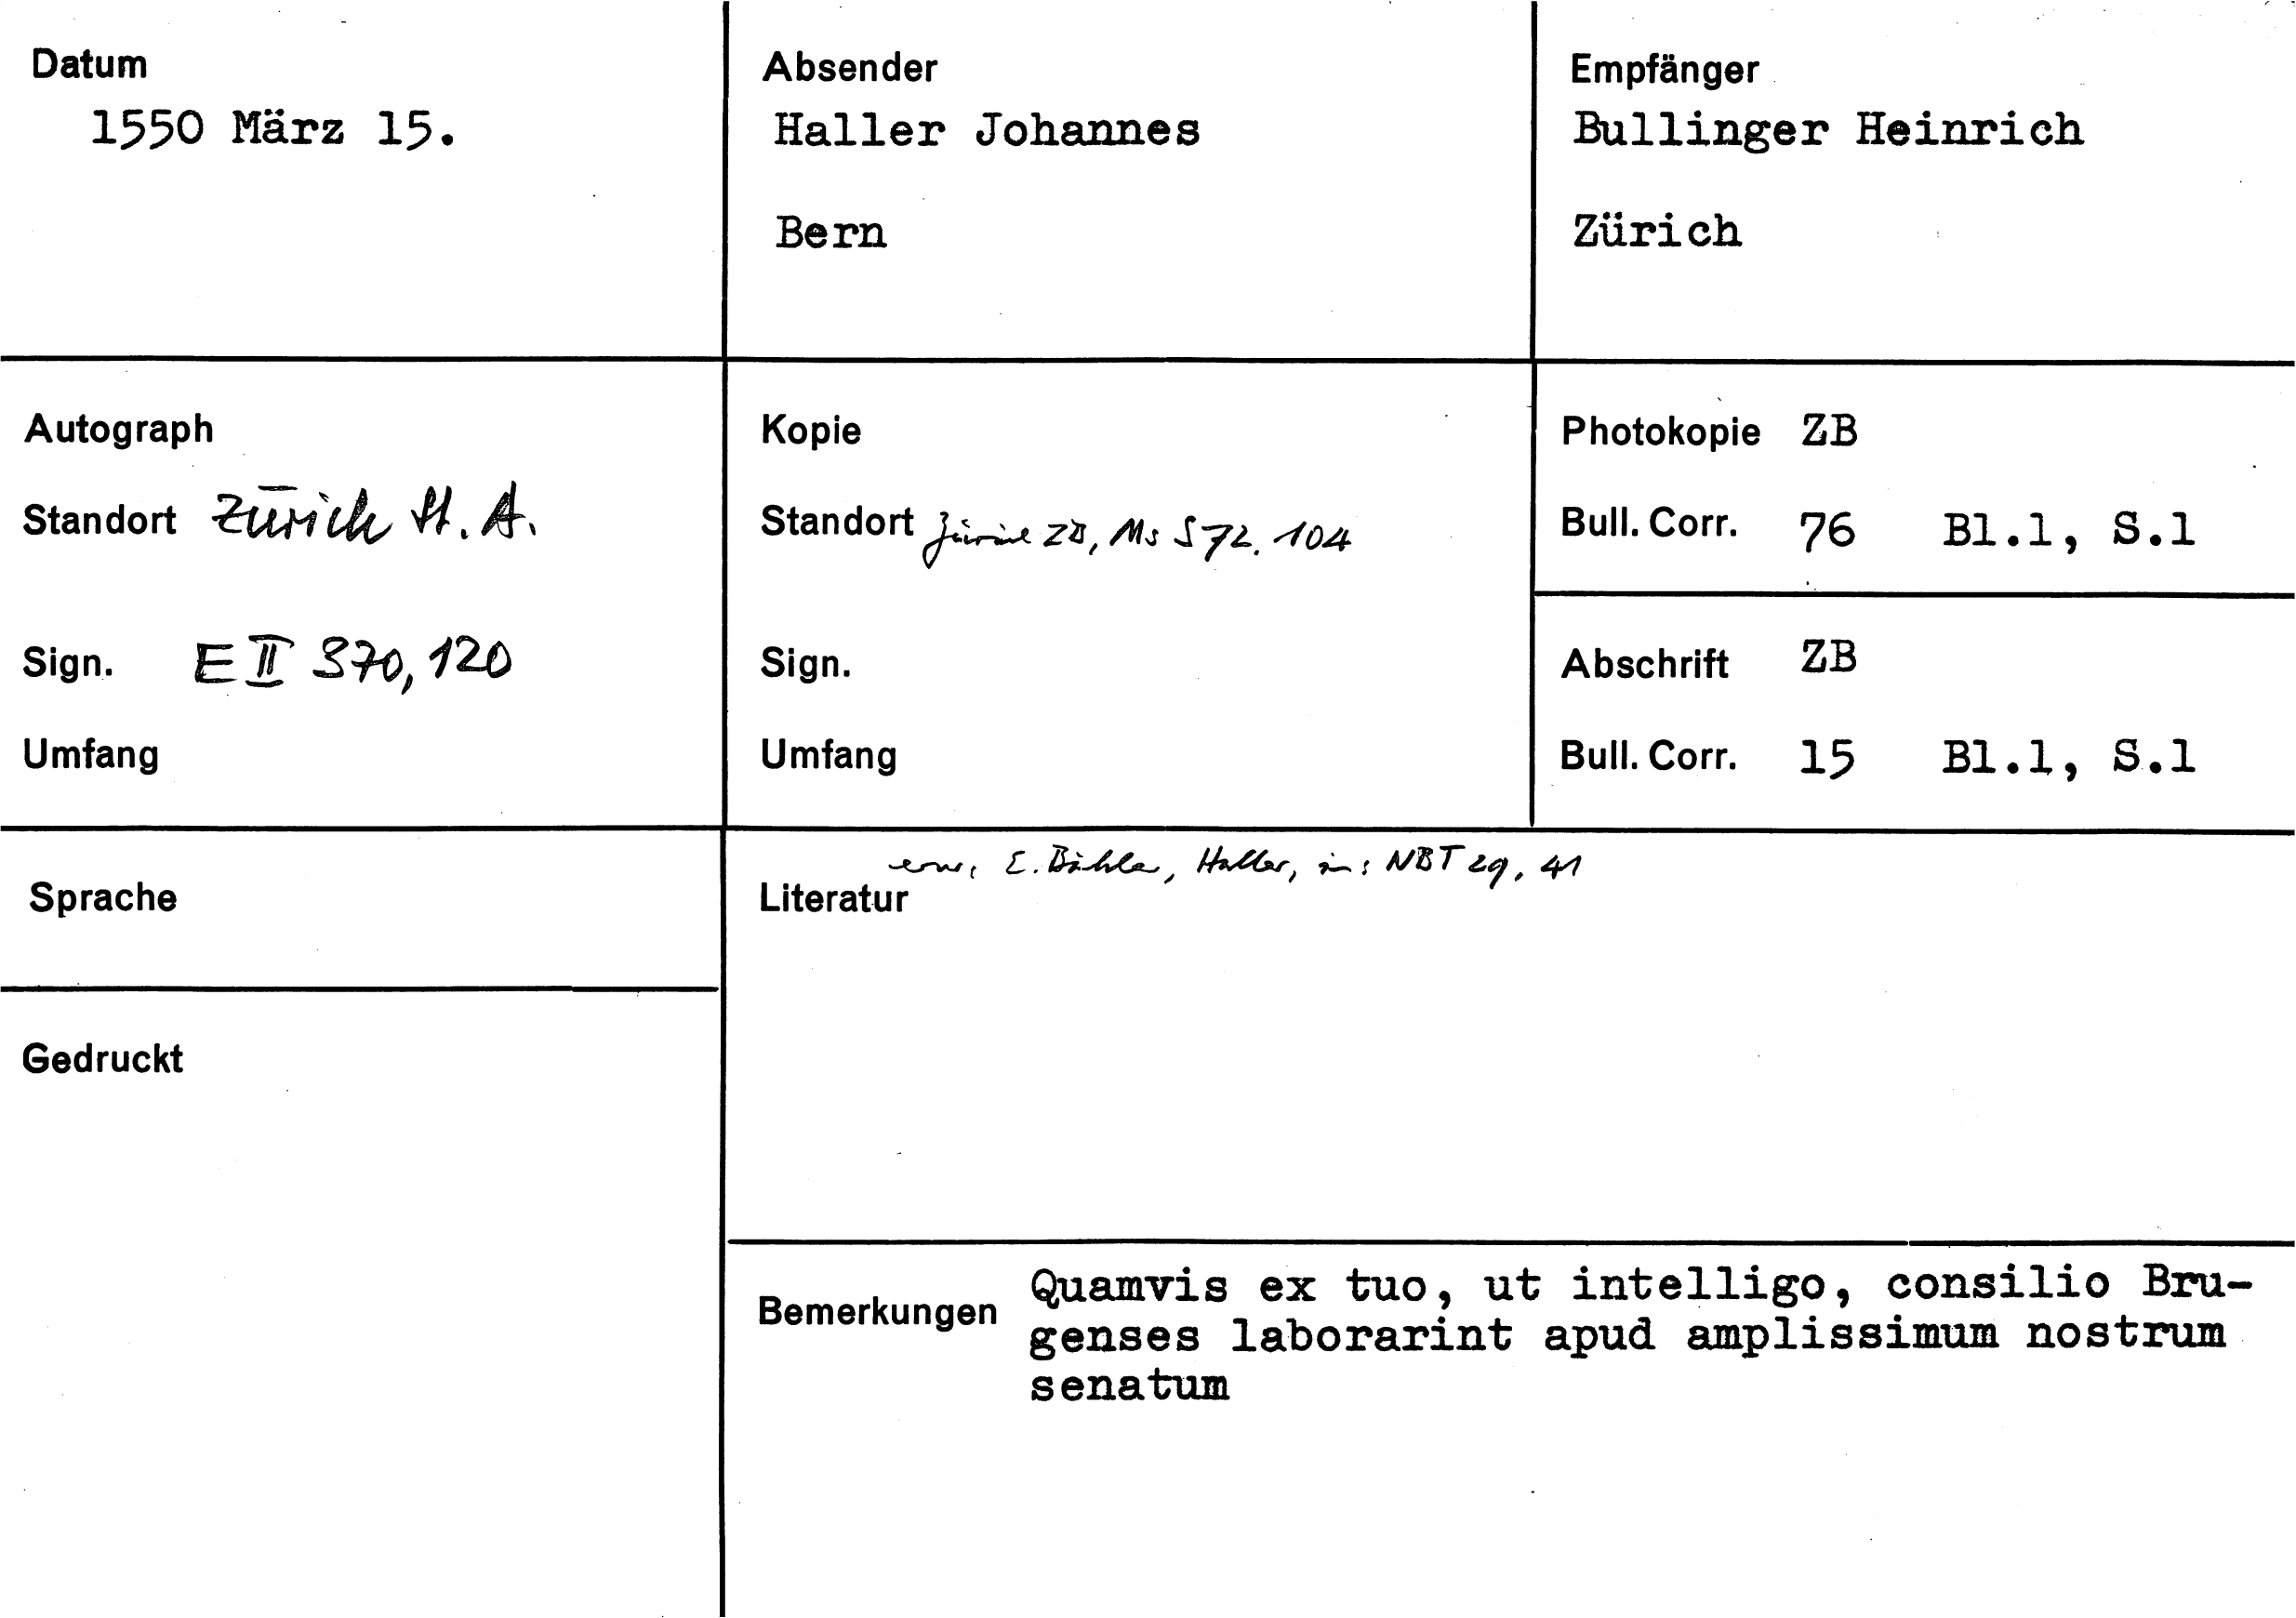 Datum
1550 März 15.
Absender
Haller Johannes
Bern
Empfänger
Bullinger Heinrich
Zürich
Autograph
Standort Zürich St. A.
Sign. E II 370, 120
Umfang
Kopie
Standort Zürich ZB, Ms S 72. 104
Sign.
Umfang
Photokopie ZB
Bull. Corr. 76 Bl.1, S.1
Abschrift ZB
Bull. Corr. 15 Bl.1, S.1
Sprache
Gedruckt
erw: E. Bähler, Haller, in: NBT 29, 41
Literatur
Bemerkungen
Quamvis ex tuo, ut intelligo, consilio Bru-
genses laborarint apud amplissimum nostrum
senatum